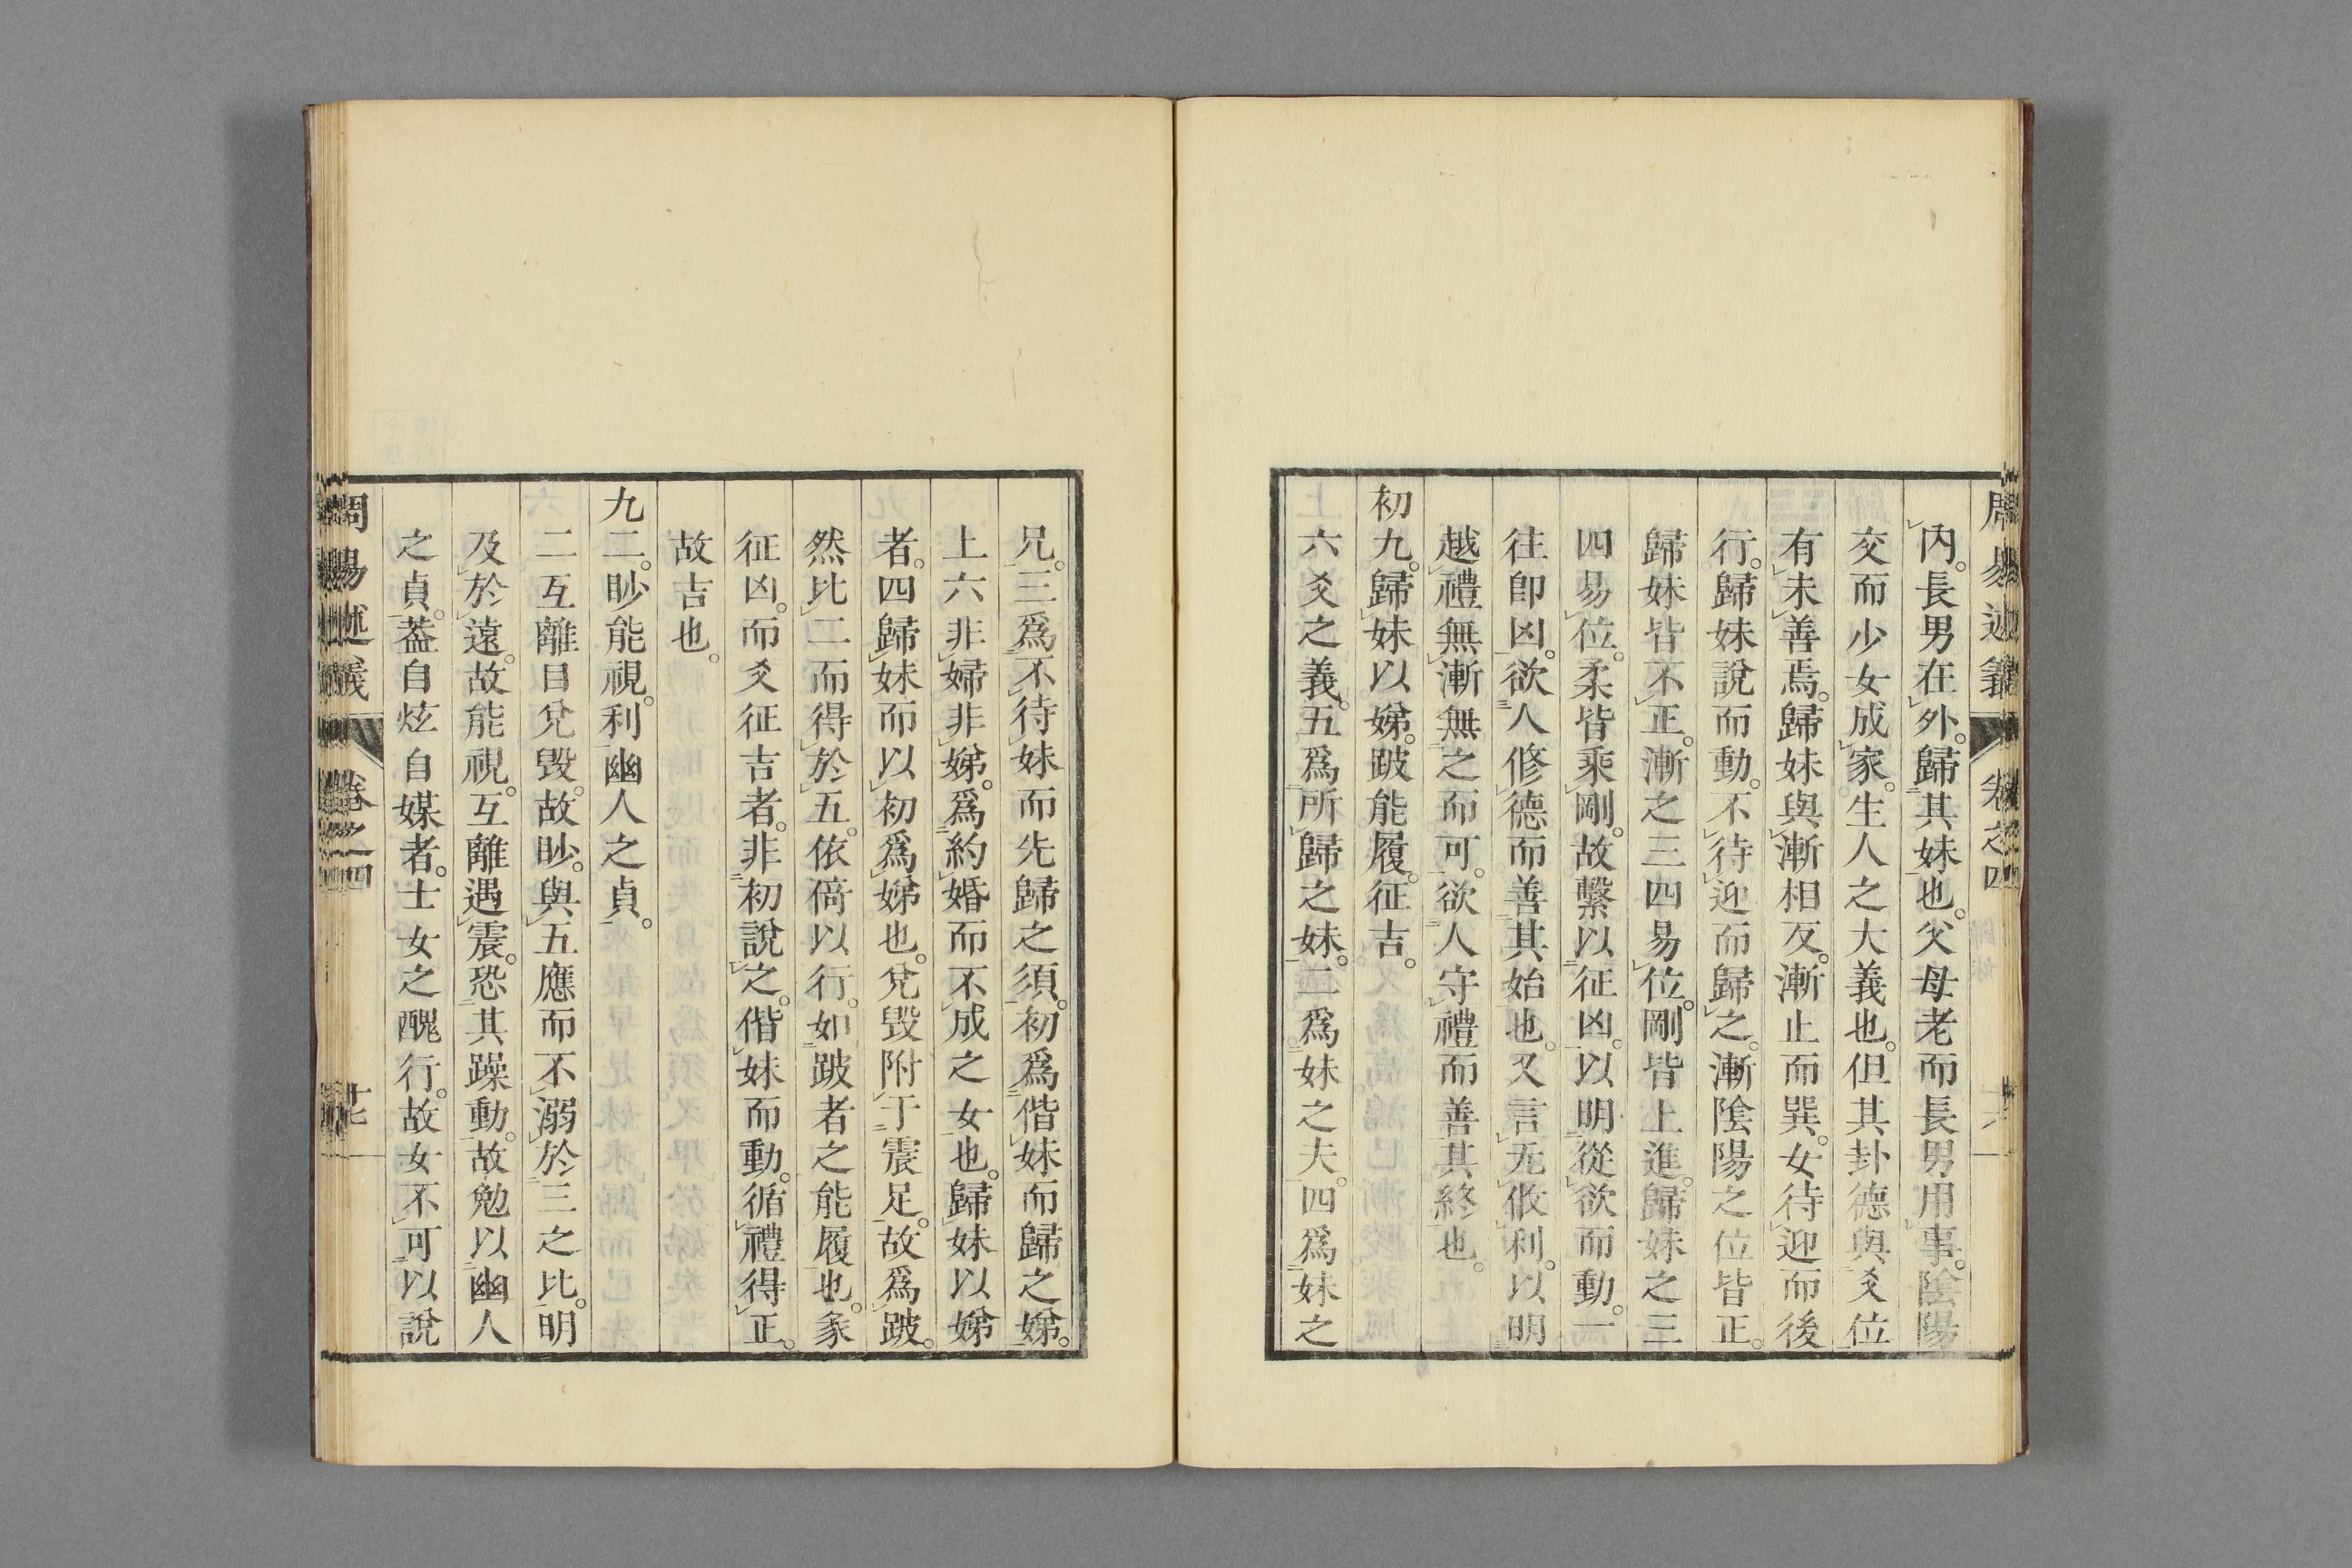 周易述義 卷之四
內。長男在外。歸其妹也。父母老而長男用事。陰陽
交而少女成家。生人之大義也。但其卦德與爻位
有未善焉。歸妹與漸相反。漸止而巽。女待迎而後
行。歸妹說而動。不待迎而歸之。漸陰陽之位皆正。
歸妹皆不正。漸之三四易位。剛皆上進。歸妹之三
四易位。柔皆乘剛。故繫以征凶。以明從欲而動。一
往卽凶。欲人修德而善其始也。又言无攸利。以明
越禮無漸無之而可。欲人守禮而善其終也。
初九。歸妹以娣。跛能履。征吉。
六爻之義。五爲所歸之妹。二爲妹之夫。四爲妹之
兄。三爲不待妹而先歸之須。初爲偕妹而歸之娣。
上六非婦非娣。爲約婚而不成之女也。歸妹以娣
者。四歸妹而以初爲娣也。兌毀附于震足。故爲跛。
然比二而得於五。依倚以行。如跛者之能履也。彖
征凶。而爻征吉者。非初說之。偕妹而動。循禮得正。
故吉也。
九二。眇能視。利幽人之貞。
二互離目兌毀。故眇。與五應而不溺於三之比。明
及於遠。故能視。互離遇震。恐其躁動。故勉以幽人
之貞。葢自炫自媒者。士女之醜行。故女不可以說
周易述義 卷之四 十七